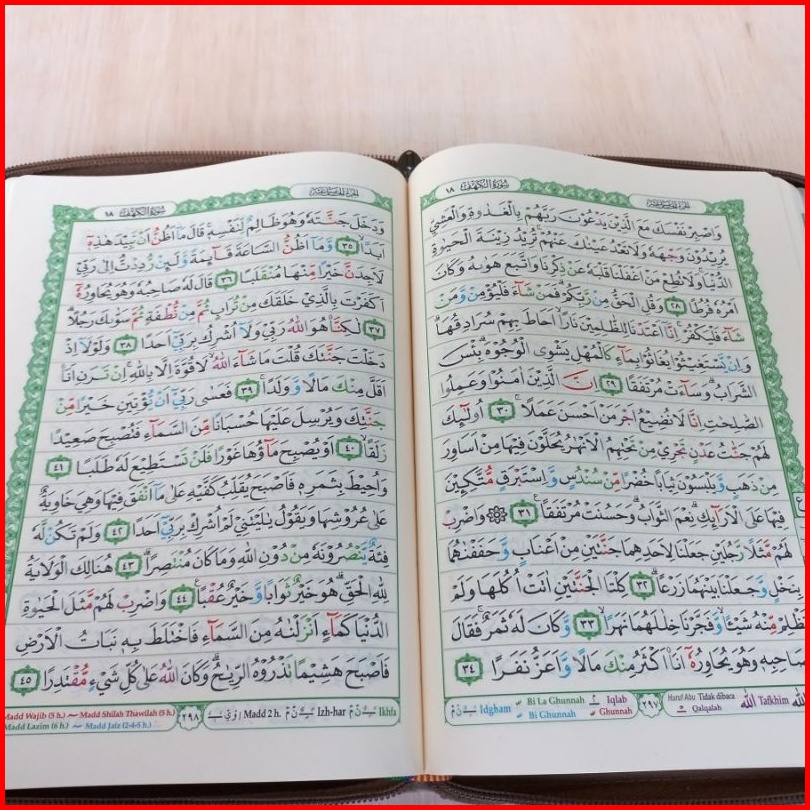 سُوْرَةُ الْكَهْفِ ١٨
وَاصْبِرْ نَفْسَكَ مَعَ الَّذِيْنَ يَدْعُوْنَ رَبَّهُمْ بِالْغَدٰوةِ وَالْعَشِيِّ
يُرِيْدُوْنَ وَجْهَهٗ وَلَا تَعْدُ عَيْنٰكَ عَنْهُمْۚ تُرِيْدُ زِيْنَةَ الْحَيٰوةِ
الدُّنْيَاۚ وَلَا تُطِعْ مَنْ اَغْفَلْنَا قَلْبَهٗ عَنْ ذِكْرِنَا وَاتَّبَعَ هَوٰىهُ وَكَانَ
اَمْرُهٗ فُرُطًا ٢٨ وَقُلِ الْحَقُّ مِنْ رَّبِّكُمْۗ فَمَنْ شَاۤءَ فَلْيُؤْمِنْ وَّمَنْ
شَاۤءَ فَلْيَكْفُرْۚ اِنَّآ اَعْتَدْنَا لِلظّٰلِمِيْنَ نَارًاۙ اَحَاطَ بِهِمْ سُرَادِقُهَاۗ
وَاِنْ يَّسْتَغِيْثُوْا يُغَاثُوْا بِمَاۤءٍ كَالْمُهْلِ يَشْوِى الْوُجُوْهَۗ بِئْسَ
الشَّرَابُۗ وَسَاۤءَتْ مُرْتَفَقًا ٢٩ اِنَّ الَّذِيْنَ اٰمَنُوْا وَعَمِلُوا
الصّٰلِحٰتِ اِنَّا لَا نُضِيْعُ اَجْرَ مَنْ اَحْسَنَ عَمَلًاۚ ٣٠ اُولٰۤىِٕكَ
لَهُمْ جَنّٰتُ عَدْنٍ تَجْرِيْ مِنْ تَحْتِهِمُ الْاَنْهٰرُ يُحَلَّوْنَ فِيْهَا مِنْ اَسَاوِرَ
مِنْ ذَهَبٍ وَّيَلْبَسُوْنَ ثِيَابًا خُضْرًا مِّنْ سُنْدُسٍ وَّاِسْتَبْرَقٍ مُّتَّكِـِٕيْنَ
فِيْهَا عَلَى الْاَرَاۤىِٕكِۗ نِعْمَ الثَّوَابُۗ وَحَسُنَتْ مُرْتَفَقًا ٣١ ۞ وَاضْرِبْ
لَهُمْ مَّثَلًا رَّجُلَيْنِ جَعَلْنَا لِاَحَدِهِمَا جَنَّتَيْنِ مِنْ اَعْنَابٍ وَّحَفَفْنٰهُمَا
بِنَخْلٍ وَّجَعَلْنَا بَيْنَهُمَا زَرْعًاۗ ٣٢ كِلْتَا الْجَنَّتَيْنِ اٰتَتْ اُكُلَهَا وَلَمْ
تَظْلِمْ مِّنْهُ شَيْـًٔاۙ وَّفَجَّرْنَا خِلٰلَهُمَا نَهَرًاۙ ٣٣ وَّكَانَ لَهٗ ثَمَرٌۚ فَقَالَ
لِصَاحِبِهٖ وَهُوَ يُحَاوِرُهٗٓ اَنَا۠ اَكْثَرُ مِنْكَ مَالًا وَّاَعَزُّ نَفَرًا ٣٤
Idgham Bi La Ghunnah Iqlab ٢٩٧ Haruf Abu Tidak dibaca الله Tafkhim
Bi Ghunnah Ghunnah Qalqalah
سُوْرَةُ الْكَهْفِ ١٨
وَدَخَلَ جَنَّتَهٗ وَهُوَ ظَالِمٌ لِّنَفْسِهٖۚ قَالَ مَآ اَظُنُّ اَنْ تَبِيْدَ هٰذِهٖٓ
اَبَدًاۙ ٣٥ وَّمَآ اَظُنُّ السَّاعَةَ قَاۤىِٕمَةً وَّلَىِٕنْ رُّدِدْتُّ اِلٰى رَبِّيْ
لَاَجِدَنَّ خَيْرًا مِّنْهَا مُنْقَلَبًا ٣٦ قَالَ لَهٗ صَاحِبُهٗ وَهُوَ يُحَاوِرُهٗٓ
اَكَفَرْتَ بِالَّذِيْ خَلَقَكَ مِنْ تُرَابٍ ثُمَّ مِنْ نُّطْفَةٍ ثُمَّ سَوّٰىكَ رَجُلًاۗ
٣٧ لٰكِنَّا۠ هُوَ اللّٰهُ رَبِّيْ وَلَآ اُشْرِكُ بِرَبِّيْٓ اَحَدًا ٣٨ وَلَوْلَآ اِذْ
دَخَلْتَ جَنَّتَكَ قُلْتَ مَا شَاۤءَ اللّٰهُ لَا قُوَّةَ اِلَّا بِاللّٰهِۚ اِنْ تَرَنِ اَنَا۠
اَقَلَّ مِنْكَ مَالًا وَّوَلَدًاۚ ٣٩ فَعَسٰى رَبِّيْٓ اَنْ يُّؤْتِيَنِ خَيْرًا مِّنْ
جَنَّتِكَ وَيُرْسِلَ عَلَيْهَا حُسْبَانًا مِّنَ السَّمَاۤءِ فَتُصْبِحَ صَعِيْدًا
زَلَقًاۙ ٤٠ اَوْ يُصْبِحَ مَاۤؤُهَا غَوْرًا فَلَنْ تَسْتَطِيْعَ لَهٗ طَلَبًا ٤١
وَاُحِيْطَ بِثَمَرِهٖ فَاَصْبَحَ يُقَلِّبُ كَفَّيْهِ عَلٰى مَآ اَنْفَقَ فِيْهَا وَهِيَ خَاوِيَةٌ
عَلٰى عُرُوْشِهَا وَيَقُوْلُ يٰلَيْتَنِيْ لَمْ اُشْرِكْ بِرَبِّيْٓ اَحَدًا ٤٢ وَلَمْ تَكُنْ لَّهٗ
فِئَةٌ يَّنْصُرُوْنَهٗ مِنْ دُوْنِ اللّٰهِ وَمَا كَانَ مُنْتَصِرًاۗ ٤٣ هُنَالِكَ الْوَلَايَةُ
لِلّٰهِ الْحَقِّۗ هُوَ خَيْرٌ ثَوَابًا وَّخَيْرٌ عُقْبًاࣖ ٤٤ وَاضْرِبْ لَهُمْ مَّثَلَ الْحَيٰوةِ
الدُّنْيَا كَمَاۤءٍ اَنْزَلْنٰهُ مِنَ السَّمَاۤءِ فَاخْتَلَطَ بِهٖ نَبَاتُ الْاَرْضِ
فَاَصْبَحَ هَشِيْمًا تَذْرُوْهُ الرِّيٰحُۗ وَكَانَ اللّٰهُ عَلٰى كُلِّ شَيْءٍ مُّقْتَدِرًا ٤٥
Madd Wajib (5 h.) Madd Shilah Thawilah (5 h.) ٢٩٨ Madd 2 h. Izh-har Ikhfa
Madd Lazim (6 h.) Madd Jaiz (2-4-5 h.)